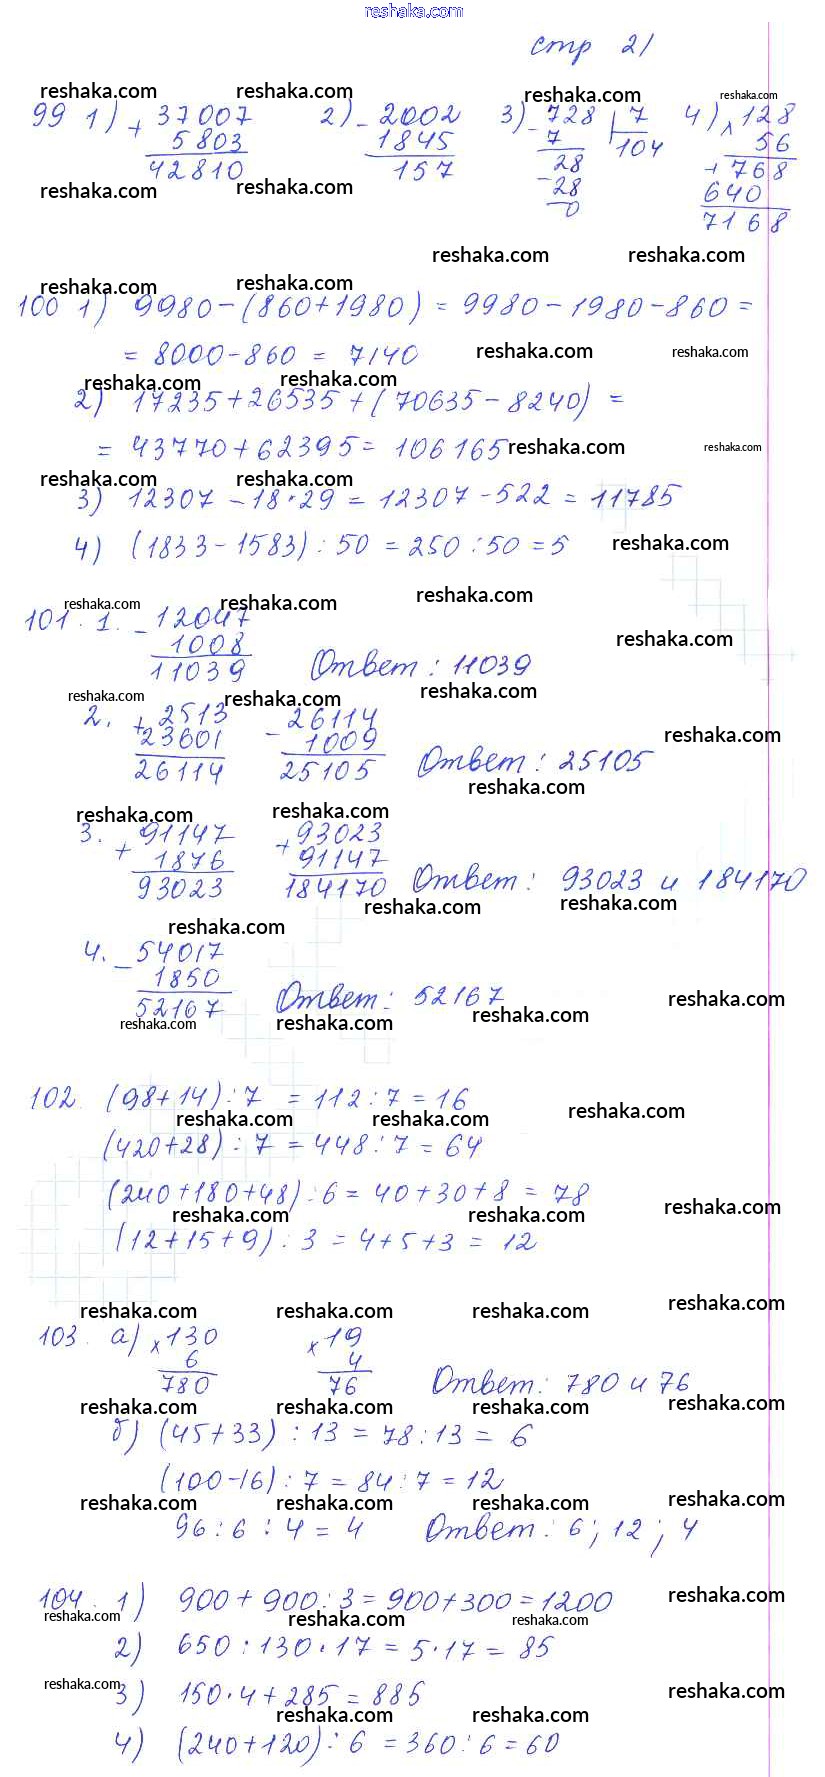 reshaka.com
стр 21
99 1) + 37007 2) - 2002 3) - 728 | 7 4) × 128
5803 1845 7 104 56
42810 157 28 + 768
- 28 640
0 7168
100 1) 9980-(860+1980) = 9980-1980-860=
= 8000-860 = 7140
2) 17235+26535+(70635-8240) =
= 43770+62395= 106165
3) 12307-18·29 = 12307-522 = 11785
4) (1833-1583):50 = 250:50=5
101. 1. - 12047
1008
11039 Ответ: 11039
2. + 2513 - 26114
23601 1009
26114 25105 Ответ: 25105
3. + 91147 + 93023
1876 91147
93023 184170 Ответ: 93023 и 184170
4. - 54017
1850
52167 Ответ: 52167
102. (98+14):7 = 112:7=16
(420+28):7 = 448:7 = 64
(240+180+48):6= 40+30+8 = 78
(12+15+9):3 = 4+5+3 = 12
103. а) × 130 × 19
6 4
780 76 Ответ: 780 и 76
б) (45+33):13 = 78:13 = 6
(100-16):7 = 84:7 = 12
96:6:4 = 4 Ответ: 6; 12; 4
104. 1) 900+900:3=900+300=1200
2) 650:130·17 = 5·17 = 85
3) 150·4+285=885
4) (240+120):6 = 360:6=60